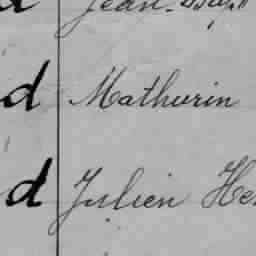 d Jean-
d Mathurin
d Julien He